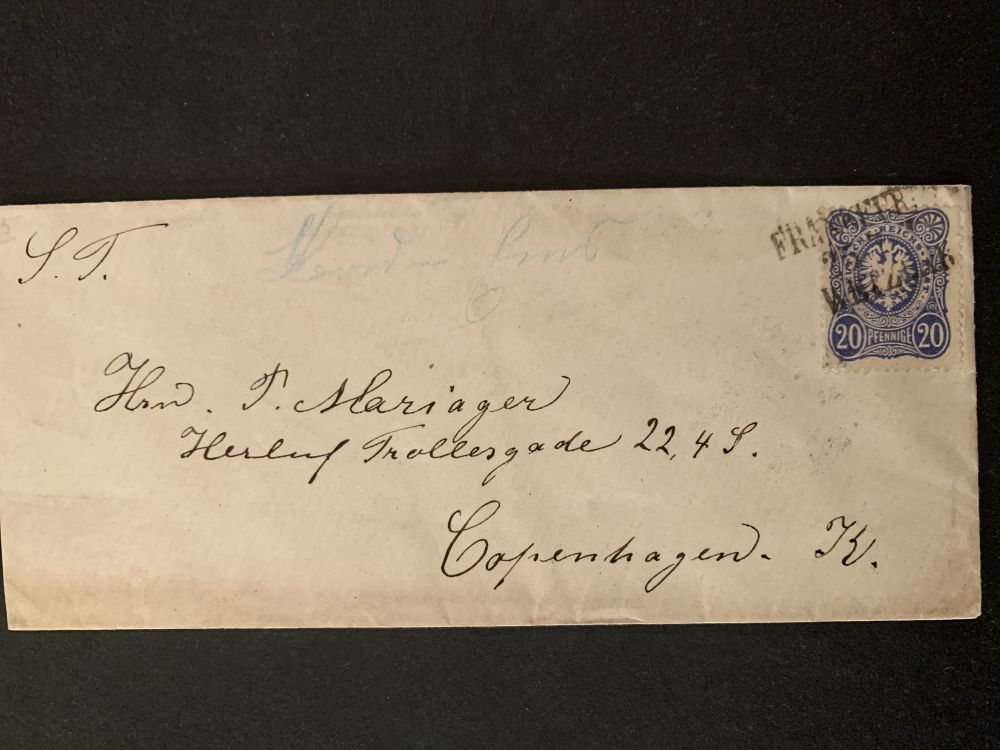 S. T.
FRANKFURT
REICHS
20 PFENNIGE 20
Hrn. P. Mariager
Herluf Trollesgade 22, 4 S.
Copenhagen. K.